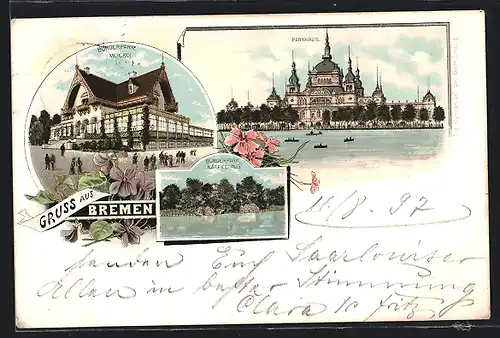 BÜRGERPARK
MEIEREI
PARKHAUS.
BÜRGERPARK
KAFFEEHAUS
GRUSS AUS
BREMEN
11/8. 97
senden Euch Saarlouiser
Allen in bester Stimmung
Clara & Fritz